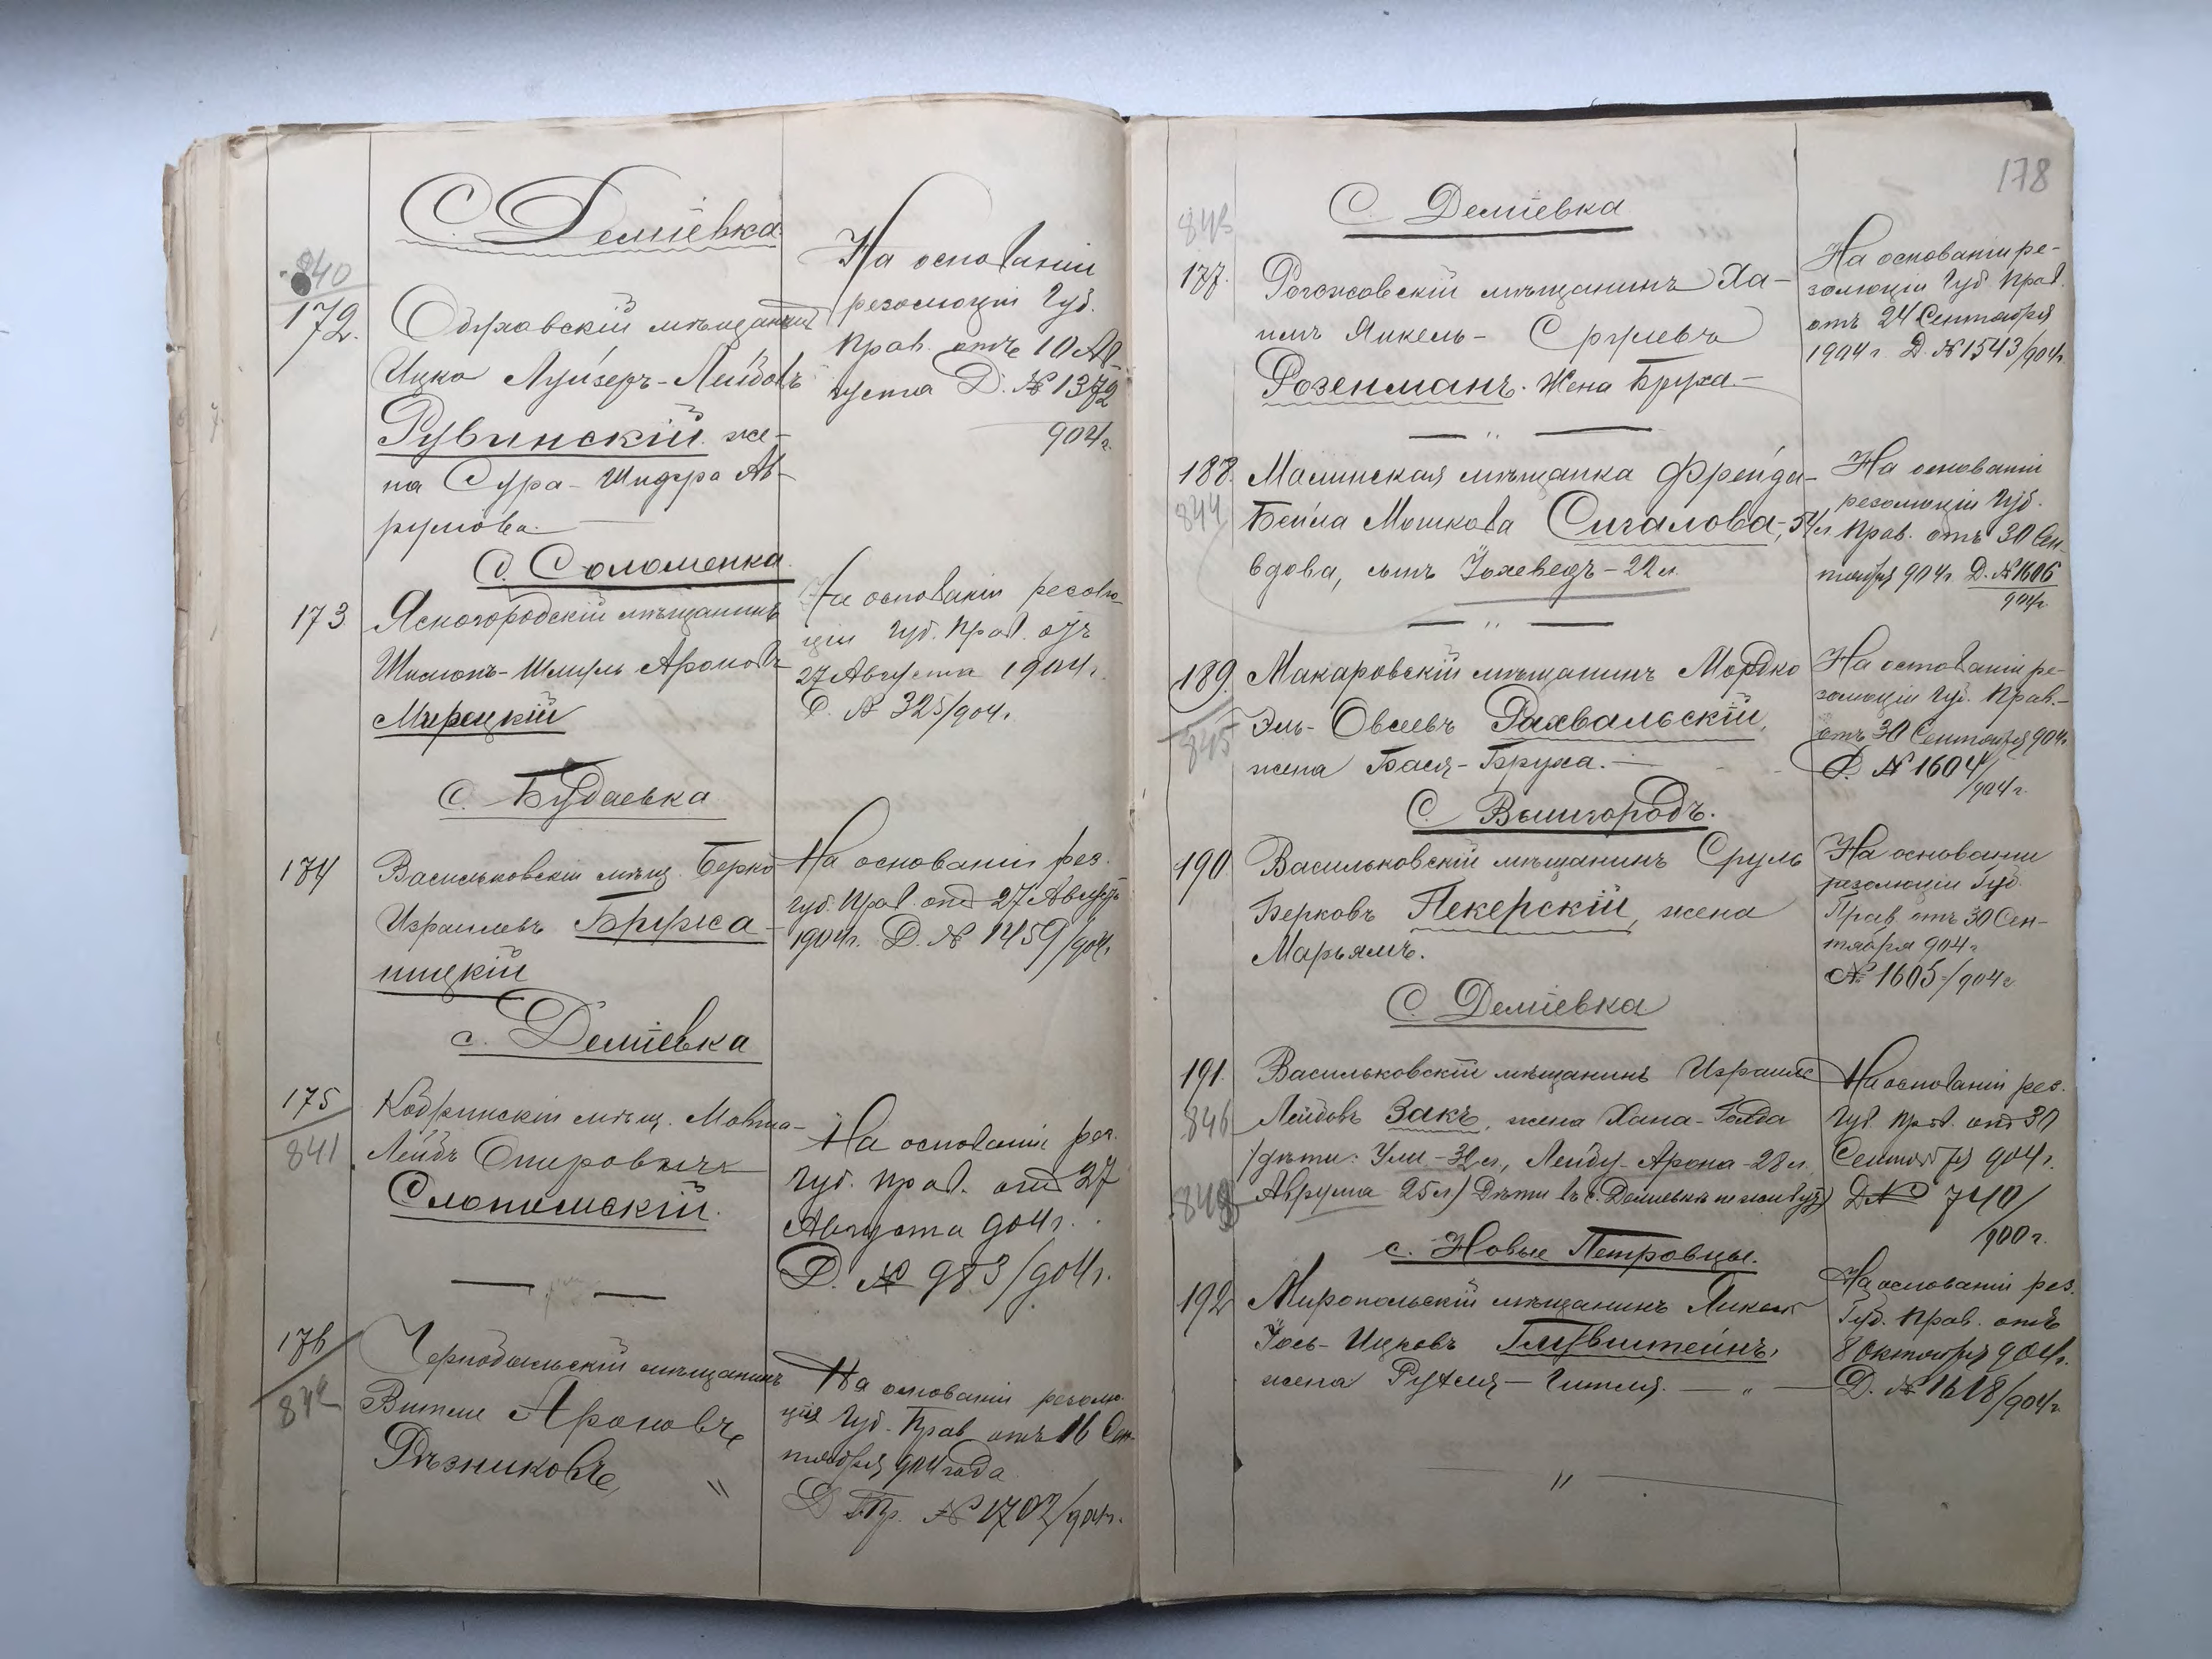 С. Деміевка
840
172.
Обуховскій мѣщанинъ
Ицко Луйзеръ-Лейбовъ
Рувинскій. же-
на Сура-Шифра Ав-
румова.
На основаніи
резолюціи Губ.
Прав. отъ 10 Ав-
густа Д. № 1372
904 г.
С. Соломенка.
173
Ясногородскій мѣщанинъ
Шимонъ-Шмуль Ароновъ
Мирецкій
На основаніи резолю-
ціи Губ. Прав. отъ
27 Августа 1904 г.
Д. № 325/904 г.
С. Будаевка
174
Васильковскій мѣщ. Берко
Израилевъ Бружа-
ницкій
На основаніи рез.
Губ. Прав. отъ 27 Августа
1904 г. Д. № 1459/904 г.
с. Деміевка
175
841
Кобринскій мѣщ. Мовша-
Лейбъ Ошеровичъ
Слонимскій.
На основаніи рез.
Губ. Прав. отъ 27
Августа 904 г.
Д. № 983/904 г.
176
842
Чернобыльскій мѣщанинъ
Ароновъ
Рѣзниковъ "
На основаніи резолю-
ція Губ. Прав. отъ 16 Сен-
тября 904 года
Д Пр. № 1702/904 г.
178
С. Деміевка
843
177.
Рогожовскій мѣщанинъ Ха-
имъ Янкель- Срулевъ
Розенманъ. Жена Бруха.—
На основаніи ре-
золюціи Губ. Прав.
отъ 24 Сентября
1904 г. Д. № 1543/904 г.
— " —
188.
844
Малинская мѣщанка Фрейда-
Бейла Мошкова Сигалова, 54 л.
вдова, сынъ Іохеведъ - 22 л.
На основаніи
резолюціи Губ.
Прав. отъ 30 Сен-
тября 904 г. Д. № 1606
904 г.
— " —
189.
845
Макаровскій мѣщанинъ Мордко
Эль- Овсеевъ Рахвальскій,
жена Бася-Бруха.—
На основаніи ре-
золюціи Губ. Прав.-
отъ 30 Сентября 904 г.
Д. № 1604/
/904 г.
С. Вышгородъ.
190
Васильковскій мѣщанинъ Сруль
Берковъ Пекерскій, жена
Марьямъ.
На основаніи
резолюціи Губ.
Прав. отъ 30 Сен-
тября 904 г
№ 1605/904 г
С. Деміевка
191.
846
848
Васильковскій мѣщанинъ Израиль
Лейбовъ Закъ, жена Хана-Голда
/дѣти: Ули - 32 л., Лейбу-Арона - 28 л.
Аврума 25 л./ Дѣти въ с. Деміевкѣ не живутъ)
На основаніи рез.
Губ. Прав. отъ 30
Сентября 904 г.
Д № 740/
/900 г.
с. Новые Петровцы.
192
Миропольскій мѣщанинъ
Іось- Ицковъ Глувштейнъ,
жена Рухля — Гитля. — " —
На основаніи рез.
Губ. Прав. отъ
8 Октября 904 г.
Д. № 1618/904 г.
— " —